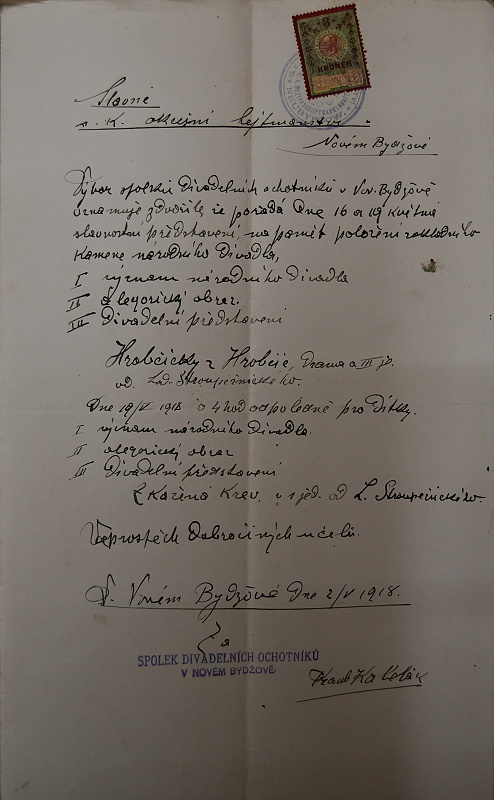 3
KRONEN
Slavné
c. K. okresní hejtmanství
Novém Bydžově
Výbor spolku Divadelních ochotníků v Nov. Bydžově
oznamuje zdvořile že pořádá Dne 16 a 19 května
slavnostní představení, na pamět položení základního
Kamene národního Divadla,
I význam národního Divadla
II alegorický obraz.
III Divadelní představení
Hrobčický z Hrobčic, Drama o III j.
od Lad. Stroupežnického.
Dne 19/V 1918 o 4 hod odpoledne pro Dítky.
I význam národního Divadla.
II alegorický obraz
III Divadelní představení
Zkažená Krev, v 1 jed. od L. Stroupežnického.
Ve prospěch Dobročinných účelů.
V Novém Bydžově Dne 2/V 1918.
Za
SPOLEK DIVADELNÍCH OCHOTNÍKŮ
V NOVÉM BYDŽOVĚ